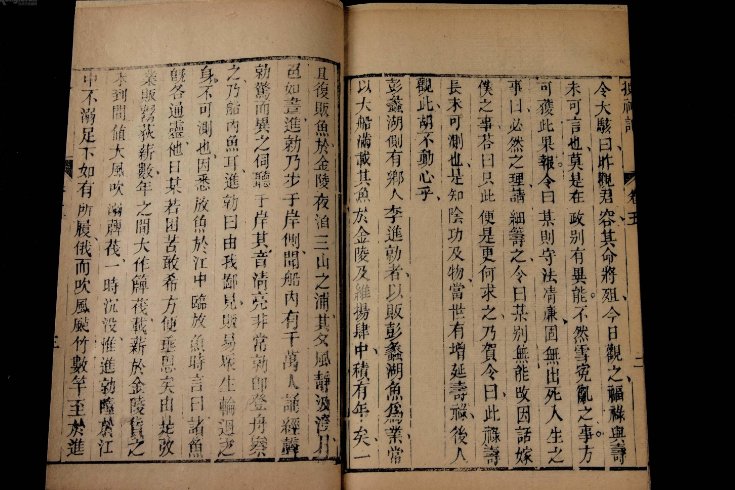 搜神記 卷五 二
令大駭曰昨觀君容其命將殂今日觀之福祿與壽
未可言也莫是在政别有異能不然雪寃亂之事方
可獲此果報令曰某則守法清廉固無出死人生之
事曰必然之理請細籌之令曰某别無能政因話嫁
僕之事荅曰只此便是更何求之乃賀令曰此祿壽
長未可測也是知陰功及物當世有增延壽祿後人
觀此胡不動心乎
彭蠡湖側有鄉人李進勍者以販彭蠡湖魚爲業常
以大船滿載其魚於金陵及維揚肆中積有年矣一
且復販魚於金陵夜泊三山之浦其夕風靜波澄月
色如晝進勍乃步于岸側聞船内有千萬人誦經聲
勍驚而異之伺聽于岸其音清亮非常勍卽登舟察
之乃船内魚耳進勍曰由我鄙見販易衆生輪迴之
身不可測也因悉放魚於江中臨放魚時言曰諸魚
旣各通靈他日某若困苦敢希方便垂恩矣由是改
業販鬻荻薪數年之間大作牌茷載薪於金陵貨之
未到間値大風吹溺牌茷一時沉没推進勍墮於江
中不溺足下如有所履俄而吹風颭竹數竿至於進
三